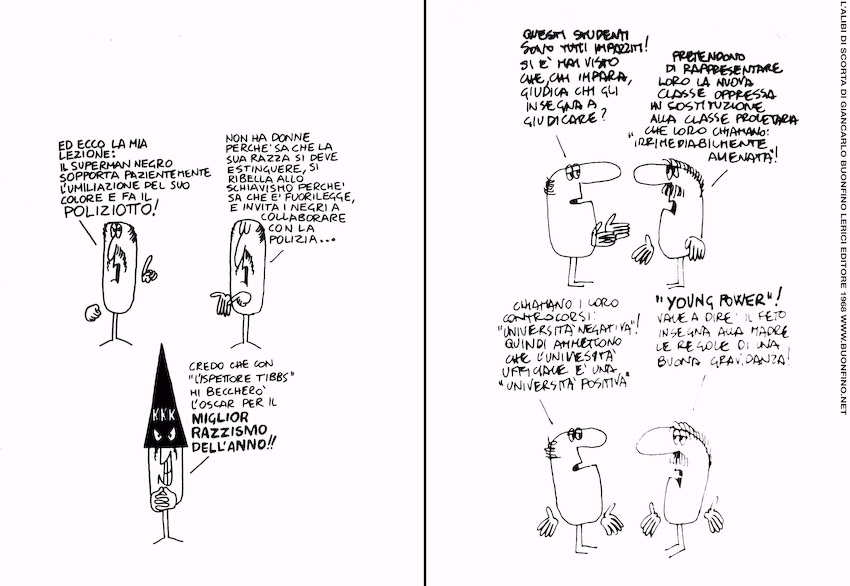 ED ECCO LA MIA
LEZIONE:
IL SUPERMAN NEGRO
SOPPORTA PAZIENTEMENTE
L'UMILIAZIONE DEL SUO
COLORE E FA IL
POLIZIOTTO!
NON HA DONNE
PERCHE' SA CHE LA
SUA RAZZA SI DEVE
ESTINGUERE, SI
RIBELLA ALLO
SCHIAVISMO PERCHE'
SA CHE E' FUORILEGGE,
E INVITA I NEGRI A
COLLABORARE
CON LA
POLIZIA...
KKK
CREDO CHE CON
"L'ISPETTORE TIBBS"
MI BECCHERÒ
L'OSCAR PER IL
MIGLIOR
RAZZISMO
DELL'ANNO!!
QUESTI STUDENTI
SONO TUTTI IMPAZZITI!
SI È MAI VISTO
CHE, CHI IMPARA,
GIUDICA CHI GLI
INSEGNA A
GIUDICARE?
PRETENDONO
DI RAPPRESENTARE
LORO LA NUOVA
CLASSE OPPRESSA
IN SOSTITUZIONE
ALLA CLASSE PROLETARIA
CHE LORO CHIAMANO:
"IRRIMEDIABILMENTE
AMENATA"!
CHIAMANO I LORO
CONTROCORSI:
"UNIVERSITÀ NEGATIVA"!
QUINDI AMMETTONO
CHE L'UNIVESITÀ
UFFICIALE E' UNA
"UNIVERSITÀ POSITIVA"
"YOUNG POWER"!
VALE A DIRE: IL FETO
INSEGNA ALLA MADRE
LE REGOLE DI UNA
BUONA GRAVIDANZA!
L'ALIBI DI SCORTA DI GIANCARLO BUONFINO LERICI EDITORE 1968 WWW.BUONFINO.NET